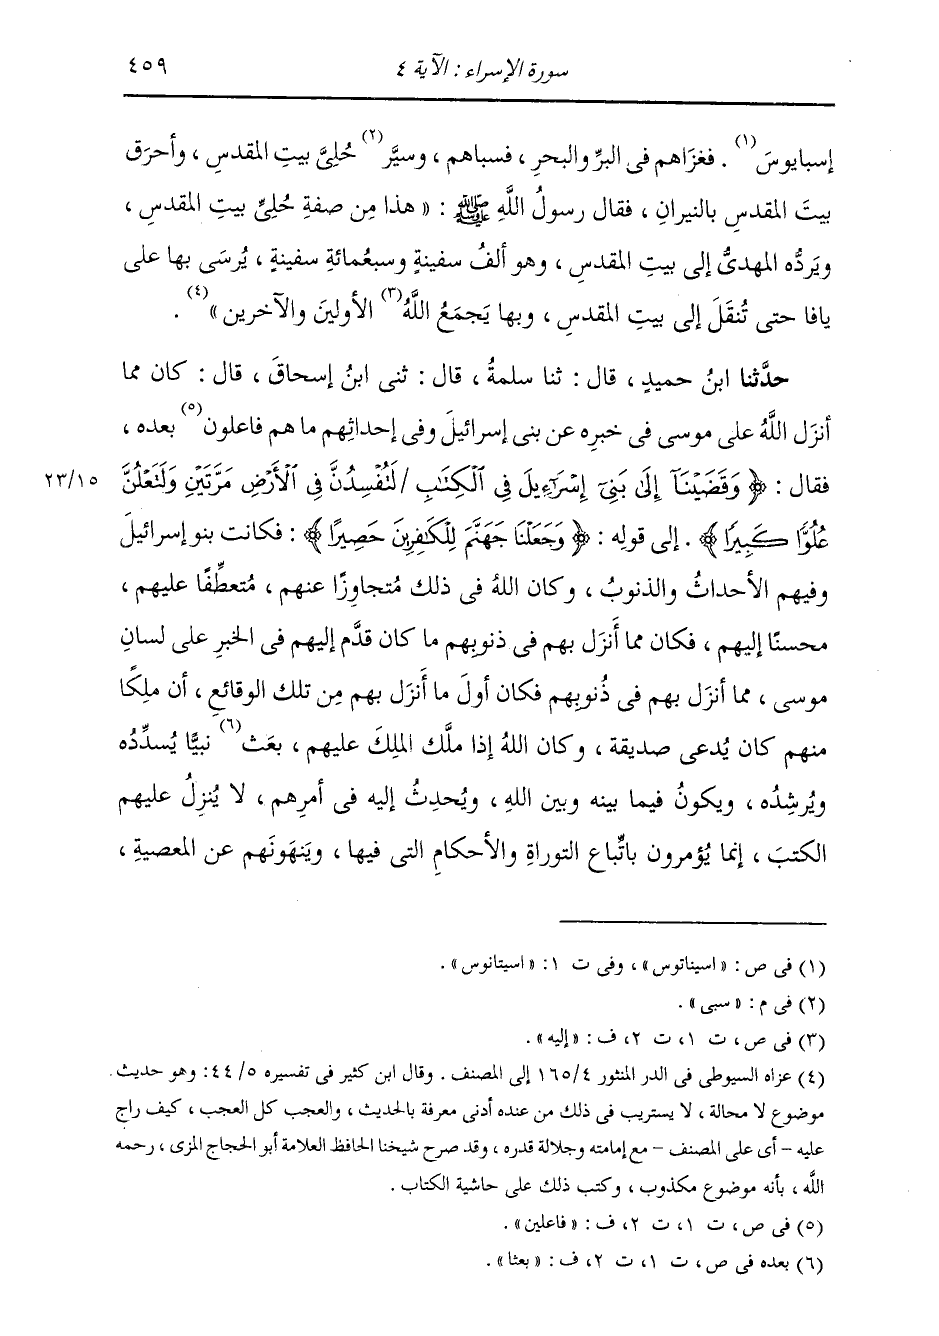 سورة الإسراء : الآية ٤
٤٥٩
إسبايوسَ(١) . فغزَاهم فى البرِّ والبحرِ ، فسباهم ، وسيَّر(٢) حُلِىَّ بيتِ المقدسِ ، وأحرَق
بيتَ المقدسِ بالنيرانِ ، فقال رسولُ اللَّهِ ﷺ : « هذا مِن صفةِ حُلِىِّ بيتِ المقدسِ ،
ويَردُّه المهدىُّ إلى بيتِ المقدسِ ، وهو ألفُ سفينةٍ وسبعُمائةِ سفينةٍ ، يُرسَى بها على
يافا حتى تُنقَلَ إلى بيتِ المقدسِ ، وبها يَجمَعُ اللَّهُ(٣) الأولينَ والآخرين »(٤) .
حدَّثنا ابنُ حميدٍ ، قال : ثنا سلمةُ ، قال : ثنى ابنُ إسحاقَ ، قال : كان مما
أنزَل اللَّهُ على موسى فى خبرِه عن بنى إسرائيلَ وفى إحداثِهم ما هم فاعلون(٥) بعده ،
فقال : ﴿ وَقَضَيْنَآ إِلَىٰ بَنِىٓ إِسْرَٰٓءِيلَ فِى ٱلْكِتَٰبِ /لَتُفْسِدُنَّ فِى ٱلْأَرْضِ مَرَّتَيْنِ وَلَتَعْلُنَّ ٢٣/١٥
عُلُوًّا كَبِيرًا ﴾ . إلى قولِه : ﴿ وَجَعَلْنَا جَهَنَّمَ لِلْكَٰفِرِينَ حَصِيرًا ﴾ : فكانت بنو إسرائيلَ
وفيهم الأحداثُ والذنوبُ ، وكان اللهُ فى ذلك مُتجاوِزًا عنهم ، مُتعطِّفًا عليهم ،
محسنًا إليهم ، فكان مما أَنزَل بهم فى ذنوبِهم ما كان قدَّم إليهم فى الخبرِ على لسانِ
موسى ، مما أنزَل بهم فى ذُنوبِهم فكان أولَ ما أَنزَل بهم مِن تلك الوقائعِ ، أن ملِكًا
منهم كان يُدعى صديقة ، وكان اللهُ إذا ملَّك الملِكَ عليهم ، بعَث(٦) نبيًّا يُسدِّدُه
ويُرشِدُه ، ويكونُ فيما بينه وبين اللهِ ، ويُحدِثُ إليه فى أمرِهم ، لا يُنزِلُ عليهم
الكتبَ ، إنما يُؤمرون باتِّباع التوراةِ والأحكامِ التى فيها ، ويَنهَونَهم عن المعصيةِ ،
(١) فى ص : « اسيناتوس » ، وفى ت ١ : « اسيتانوس » .
(٢) فى م : « سبى » .
(٣) فى ص ، ت ١ ، ت ٢ ، ف : « إليه » .
(٤) عزاه السيوطى فى الدر المنثور ١٦٥/٤ إلى المصنف . وقال ابن كثير فى تفسيره ٥/ ٤٤ : وهو حديث
موضوع لا محالة ، لا يستريب فى ذلك من عنده أدنى معرفة بالحديث ، والعجب كل العجب ، كيف راج
عليه – أى على المصنف – مع إمامته وجلالة قدره ، وقد صرح شيخنا الحافظ العلامة أبو الحجاج المزى ، رحمه
اللَّه ، بأنه موضوع مكذوب ، وكتب ذلك على حاشية الكتاب .
(٥) فى ص ، ت ١ ، ت ٢ ، ف : « فاعلين » .
(٦) بعده فى ص ، ت ١ ، ت ٢ ، ف : « بعثا » .